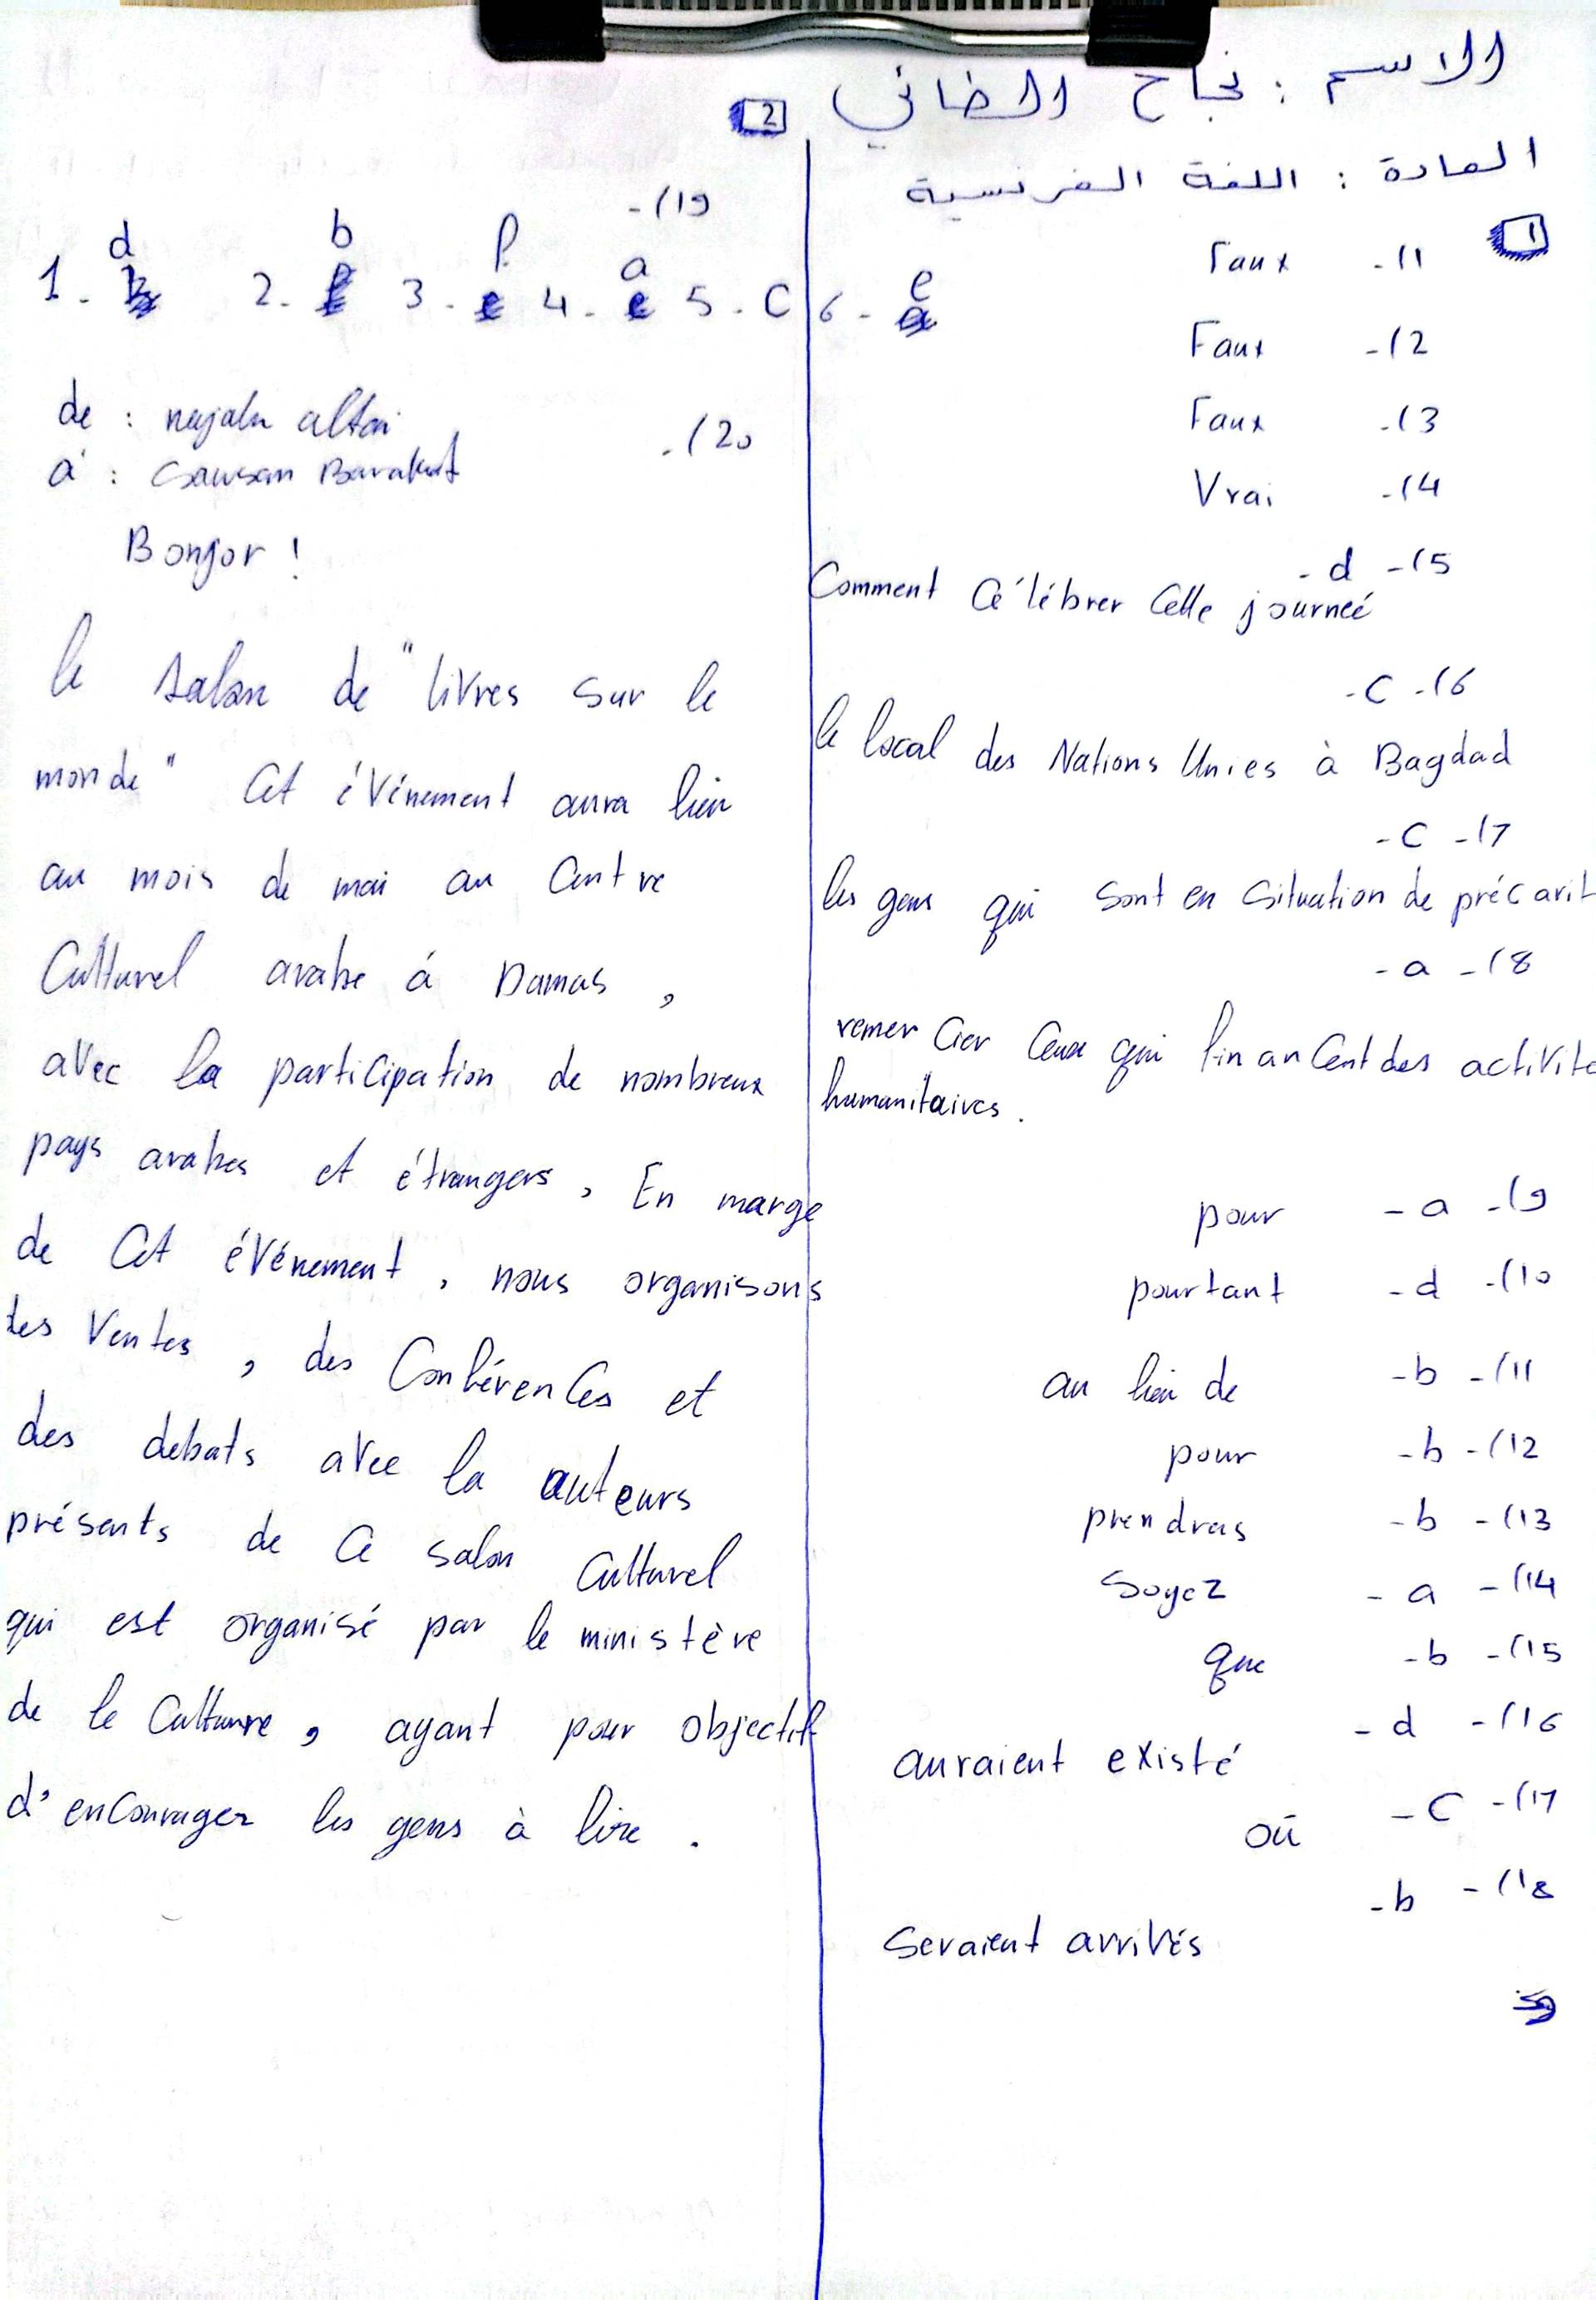 الاسم : نجاح الضاني
المادة : اللغة الفرنسية
1
1) - Faux
2) - Faux
3) - Faux
4) - Vrai
5) - d -
Comment célébrer cette journeé
6) - C -
le local des Nations Unies à Bagdad
7) - C -
les gens qui sont en situation de précarit
8) - a -
remercier ceux qui financent des activité
humanitaires.
9) - a - pour
10) - d - pourtant
11) - b - au lieu de
12) - b - pour
13) - b - prendras
14) - a - Soyez
15) - b - que
16) - d -
auraient existé
17) - C -
où
18) - b -
Seraient arrivés
2
19) -
d b f a e
1 - 2 - 3 - 4 - 5 - C 6 -
20) -
de : najah altai
à : Sawsan Barakat
Bonjor !
le salon de "livres sur le
monde" Cet événement aura lieu
au mois de mai au Centre
Culturel arabe á Damas ,
avec la participation de nombreux
pays arabes et étrangers , En marge
de Cet événement , nous organisons
des Ventes , des Conférences et
des debats avec la auteurs
présents de ce salon Culturel
qui est organisé par le ministère
de le Culture , ayant pour objectif
d'encourager les gens à lire .